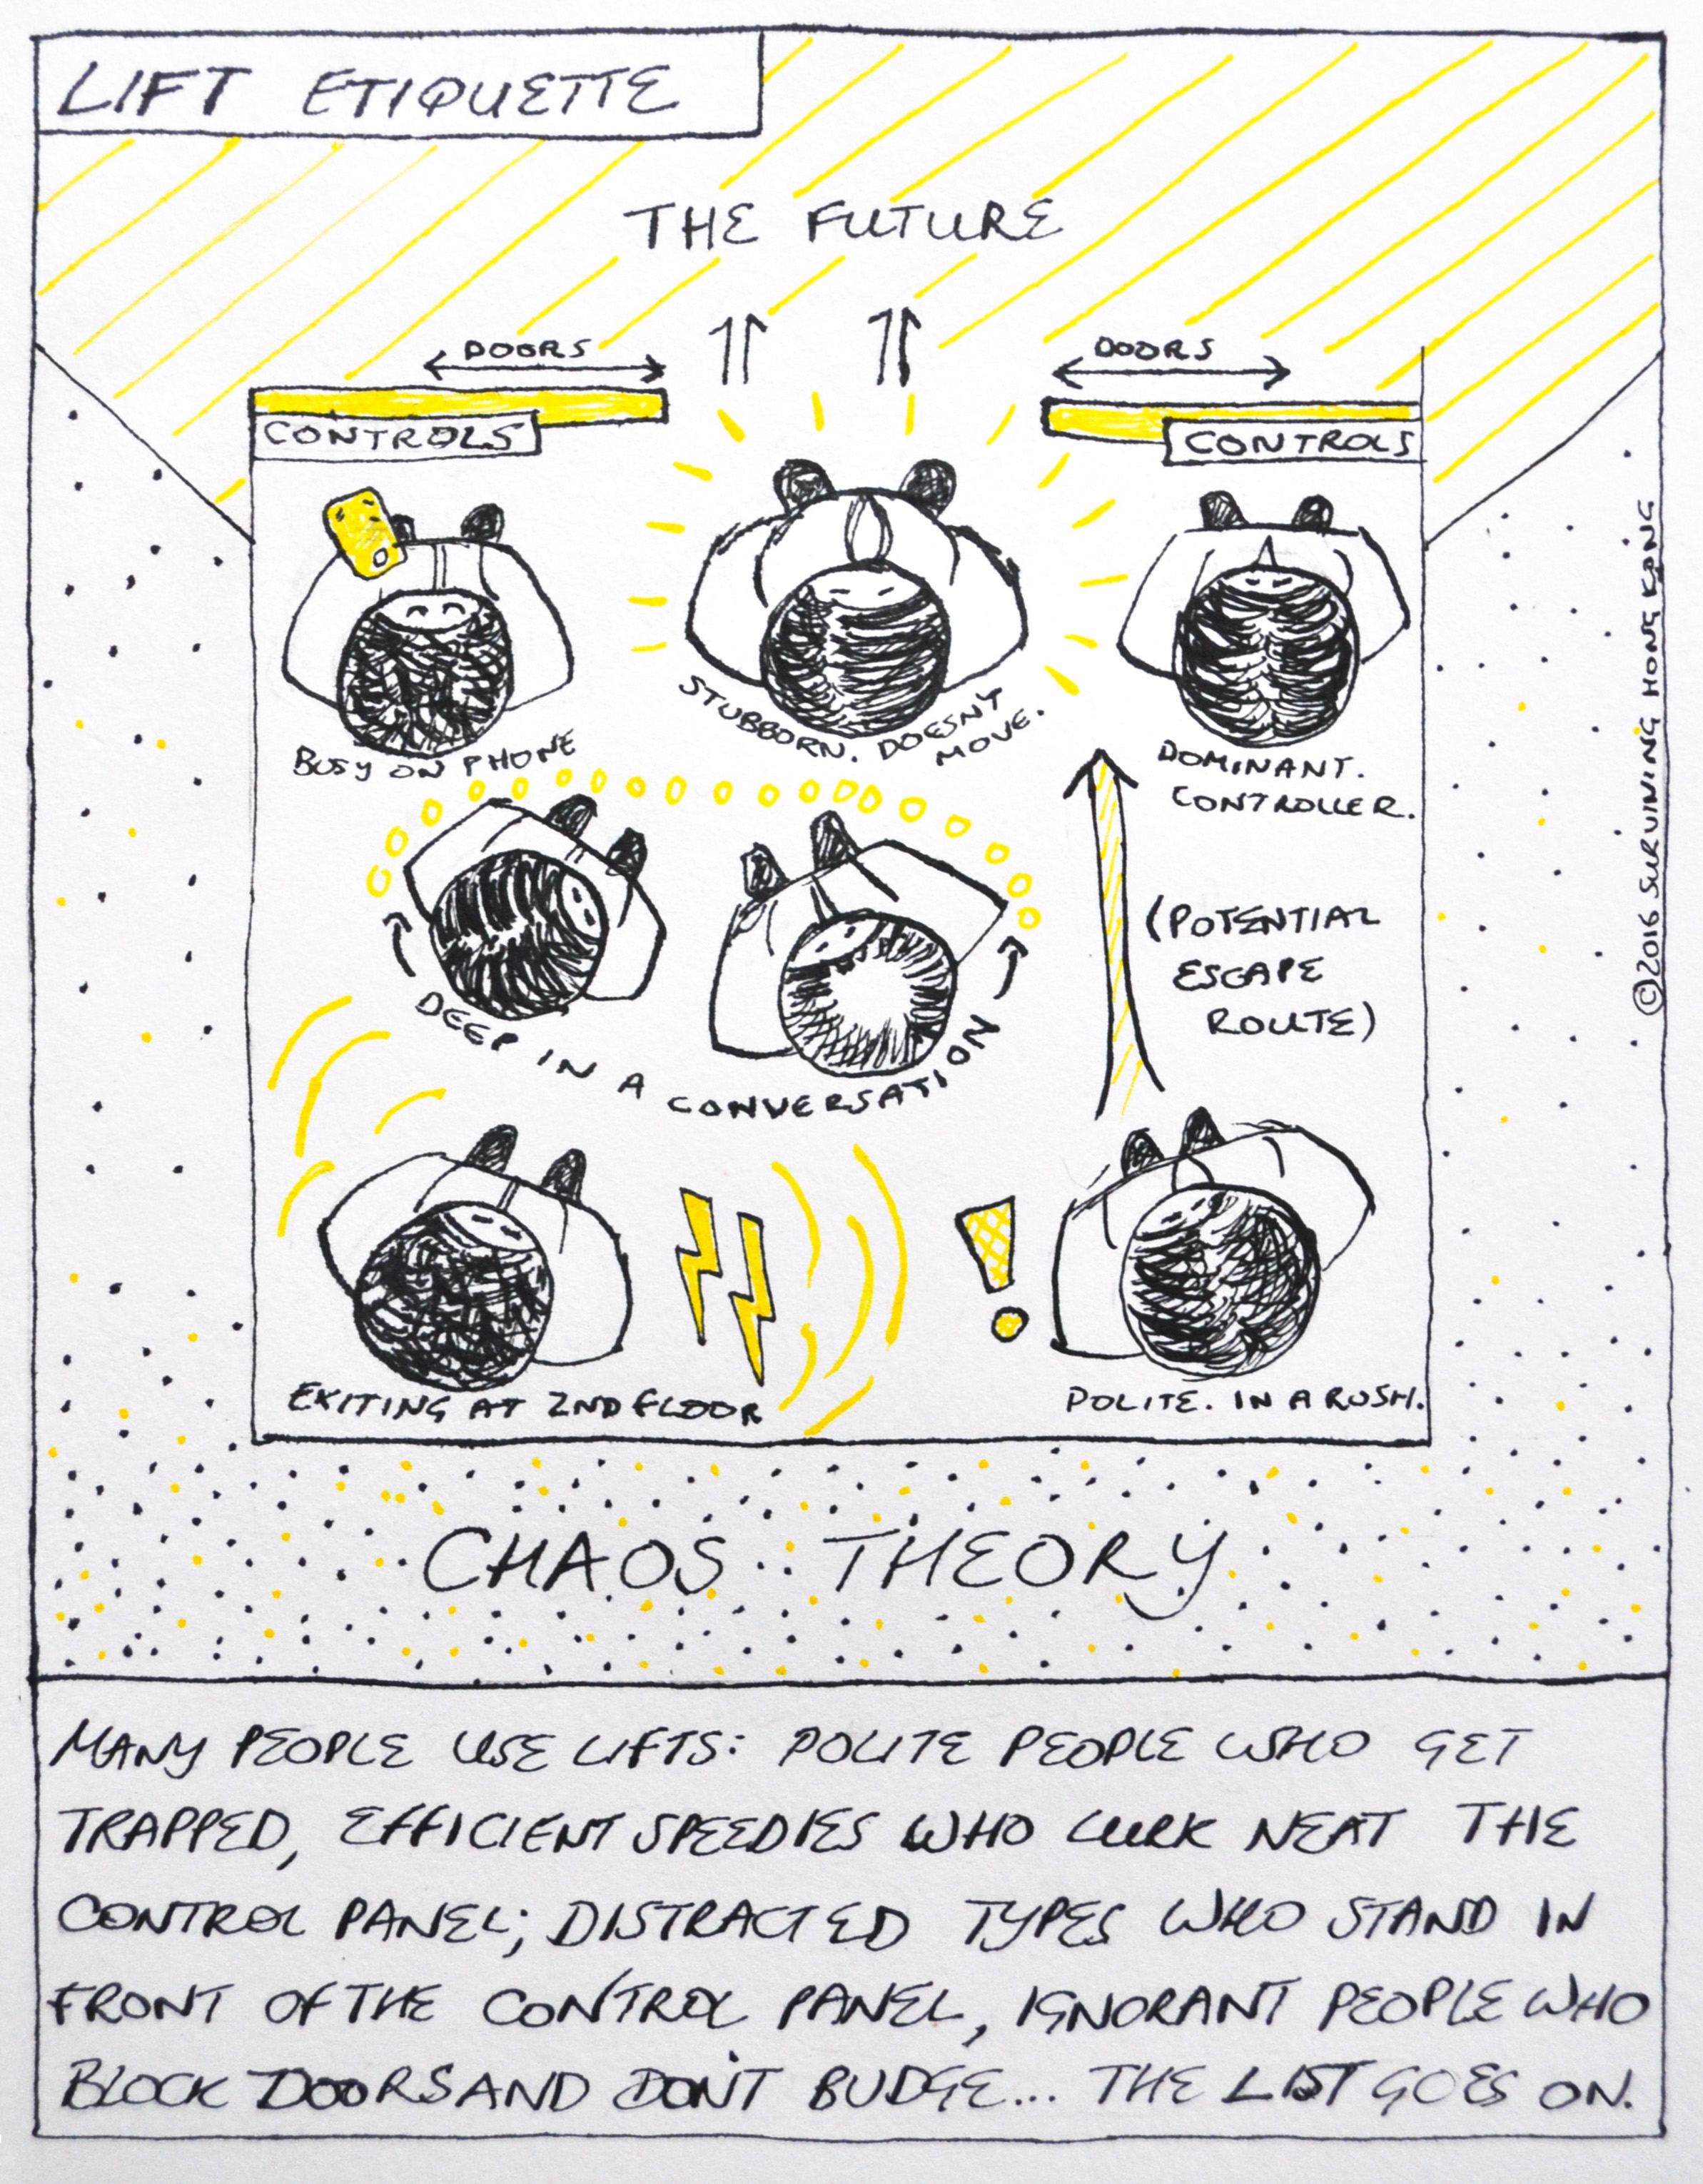 LIFT ETIQUETTE
THE FUTURE
DOORS
DOORS
CONTROLS
CONTROLS
BUSY ON PHONE
STUBBORN. DOESNT
MOVE.
DOMINANT.
CONTROLLER.
DEEP IN A CONVERSATION
(POTENTIAL
ESCAPE
ROUTE)
EXITING AT 2ND FLOOR
POLITE. IN A RUSH.
CHAOS THEORY
MANY PEOPLE USE LIFTS: POLITE PEOPLE WHO GET
TRAPPED, EFFICIENT SPEEDIES WHO LURK NEAT THE
CONTROL PANEL; DISTRACTED TYPES WHO STAND IN
FRONT OF THE CONTROL PANEL, IGNORANT PEOPLE WHO
BLOCK DOORS AND DON'T BUDGE... THE LIST GOES ON.
©2016 SURVIVING HONG KONG